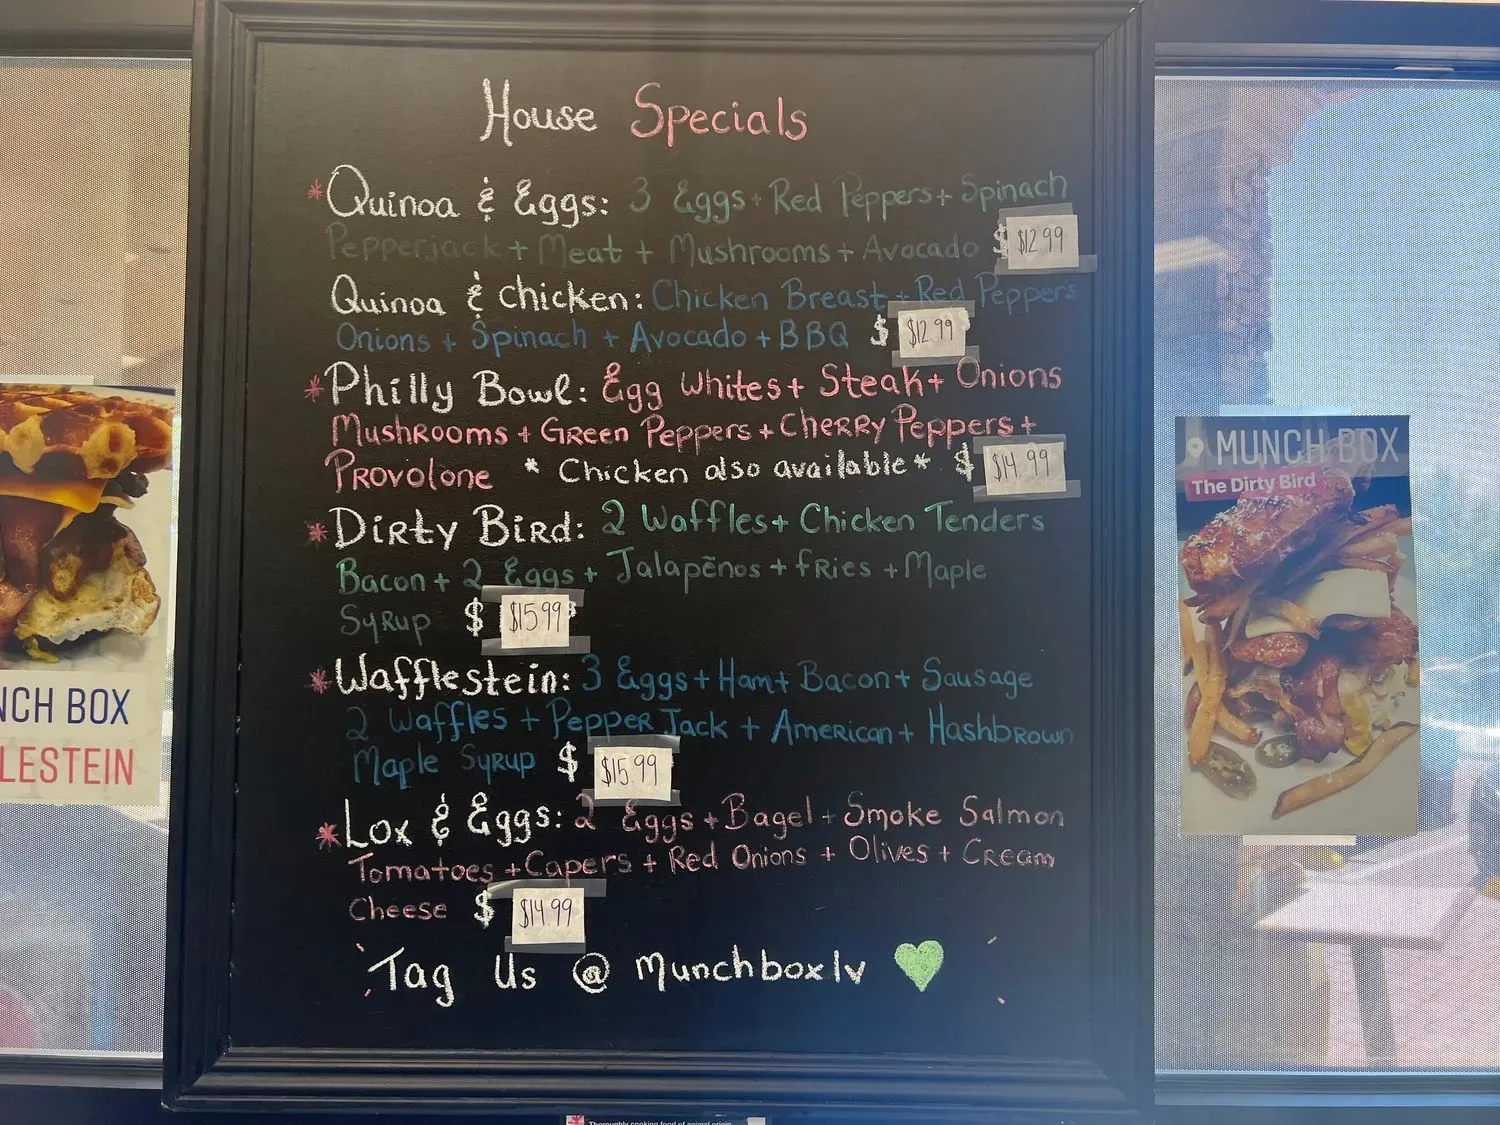 House Specials
*Quinoa & Eggs: 3 Eggs + Red Peppers + Spinach
Pepperjack + Meat + Mushrooms + Avocado $ $12.99
Quinoa & Chicken: Chicken Breast + Red Peppers
Onions + Spinach + Avocado + BBQ $ $12.99
*Philly Bowl: Egg Whites + Steak + Onions
Mushrooms + Green Peppers + Cherry Peppers +
Provolone * Chicken also available * $ $14.99
*Dirty Bird: 2 Waffles + Chicken Tenders
Bacon + 2 Eggs + Jalapēnos + fries + Maple
Syrup $ $15.99
*Wafflestein: 3 Eggs + Ham + Bacon + Sausage
2 Waffles + Pepper Jack + American + Hashbrown
Maple Syrup $ $15.99
*Lox & Eggs: 2 Eggs + Bagel + Smoke Salmon
Tomatoes + Capers + Red Onions + Olives + Cream
Cheese $ $14.99
Tag Us @ munchboxlv
NCH BOX
LESTEIN
MUNCH BOX
The Dirty Bird
Thoroughly cooking food of animal origin